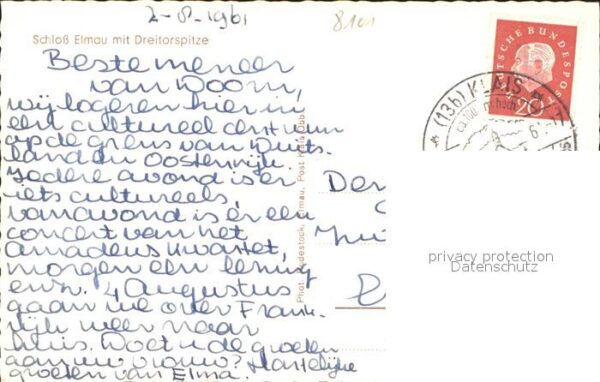 2-8-1961
8101
Schloß Elmau mit Dreitorspitze
Beste meneer
van Doorn,
wij logeren hier in
een cultureel centrum
op de grens van Duits-
land en Oostenrijk.
Iedere avond is er
iets cultureels,
vanavond is er een
concert van het
Amadeus Kwartet,
morgen een lezing
enz. 4 Augustus
gaan we over Frank-
rijk weer naar
huis. Doet u de groeten
aan uw vrouw? Hartelijke
groeten van Elma.
Elmau, Post Klais Obb.
DEUTSCHE BUNDESPOST
20
(13b) KLAIS
privacy protection
Datenschutz